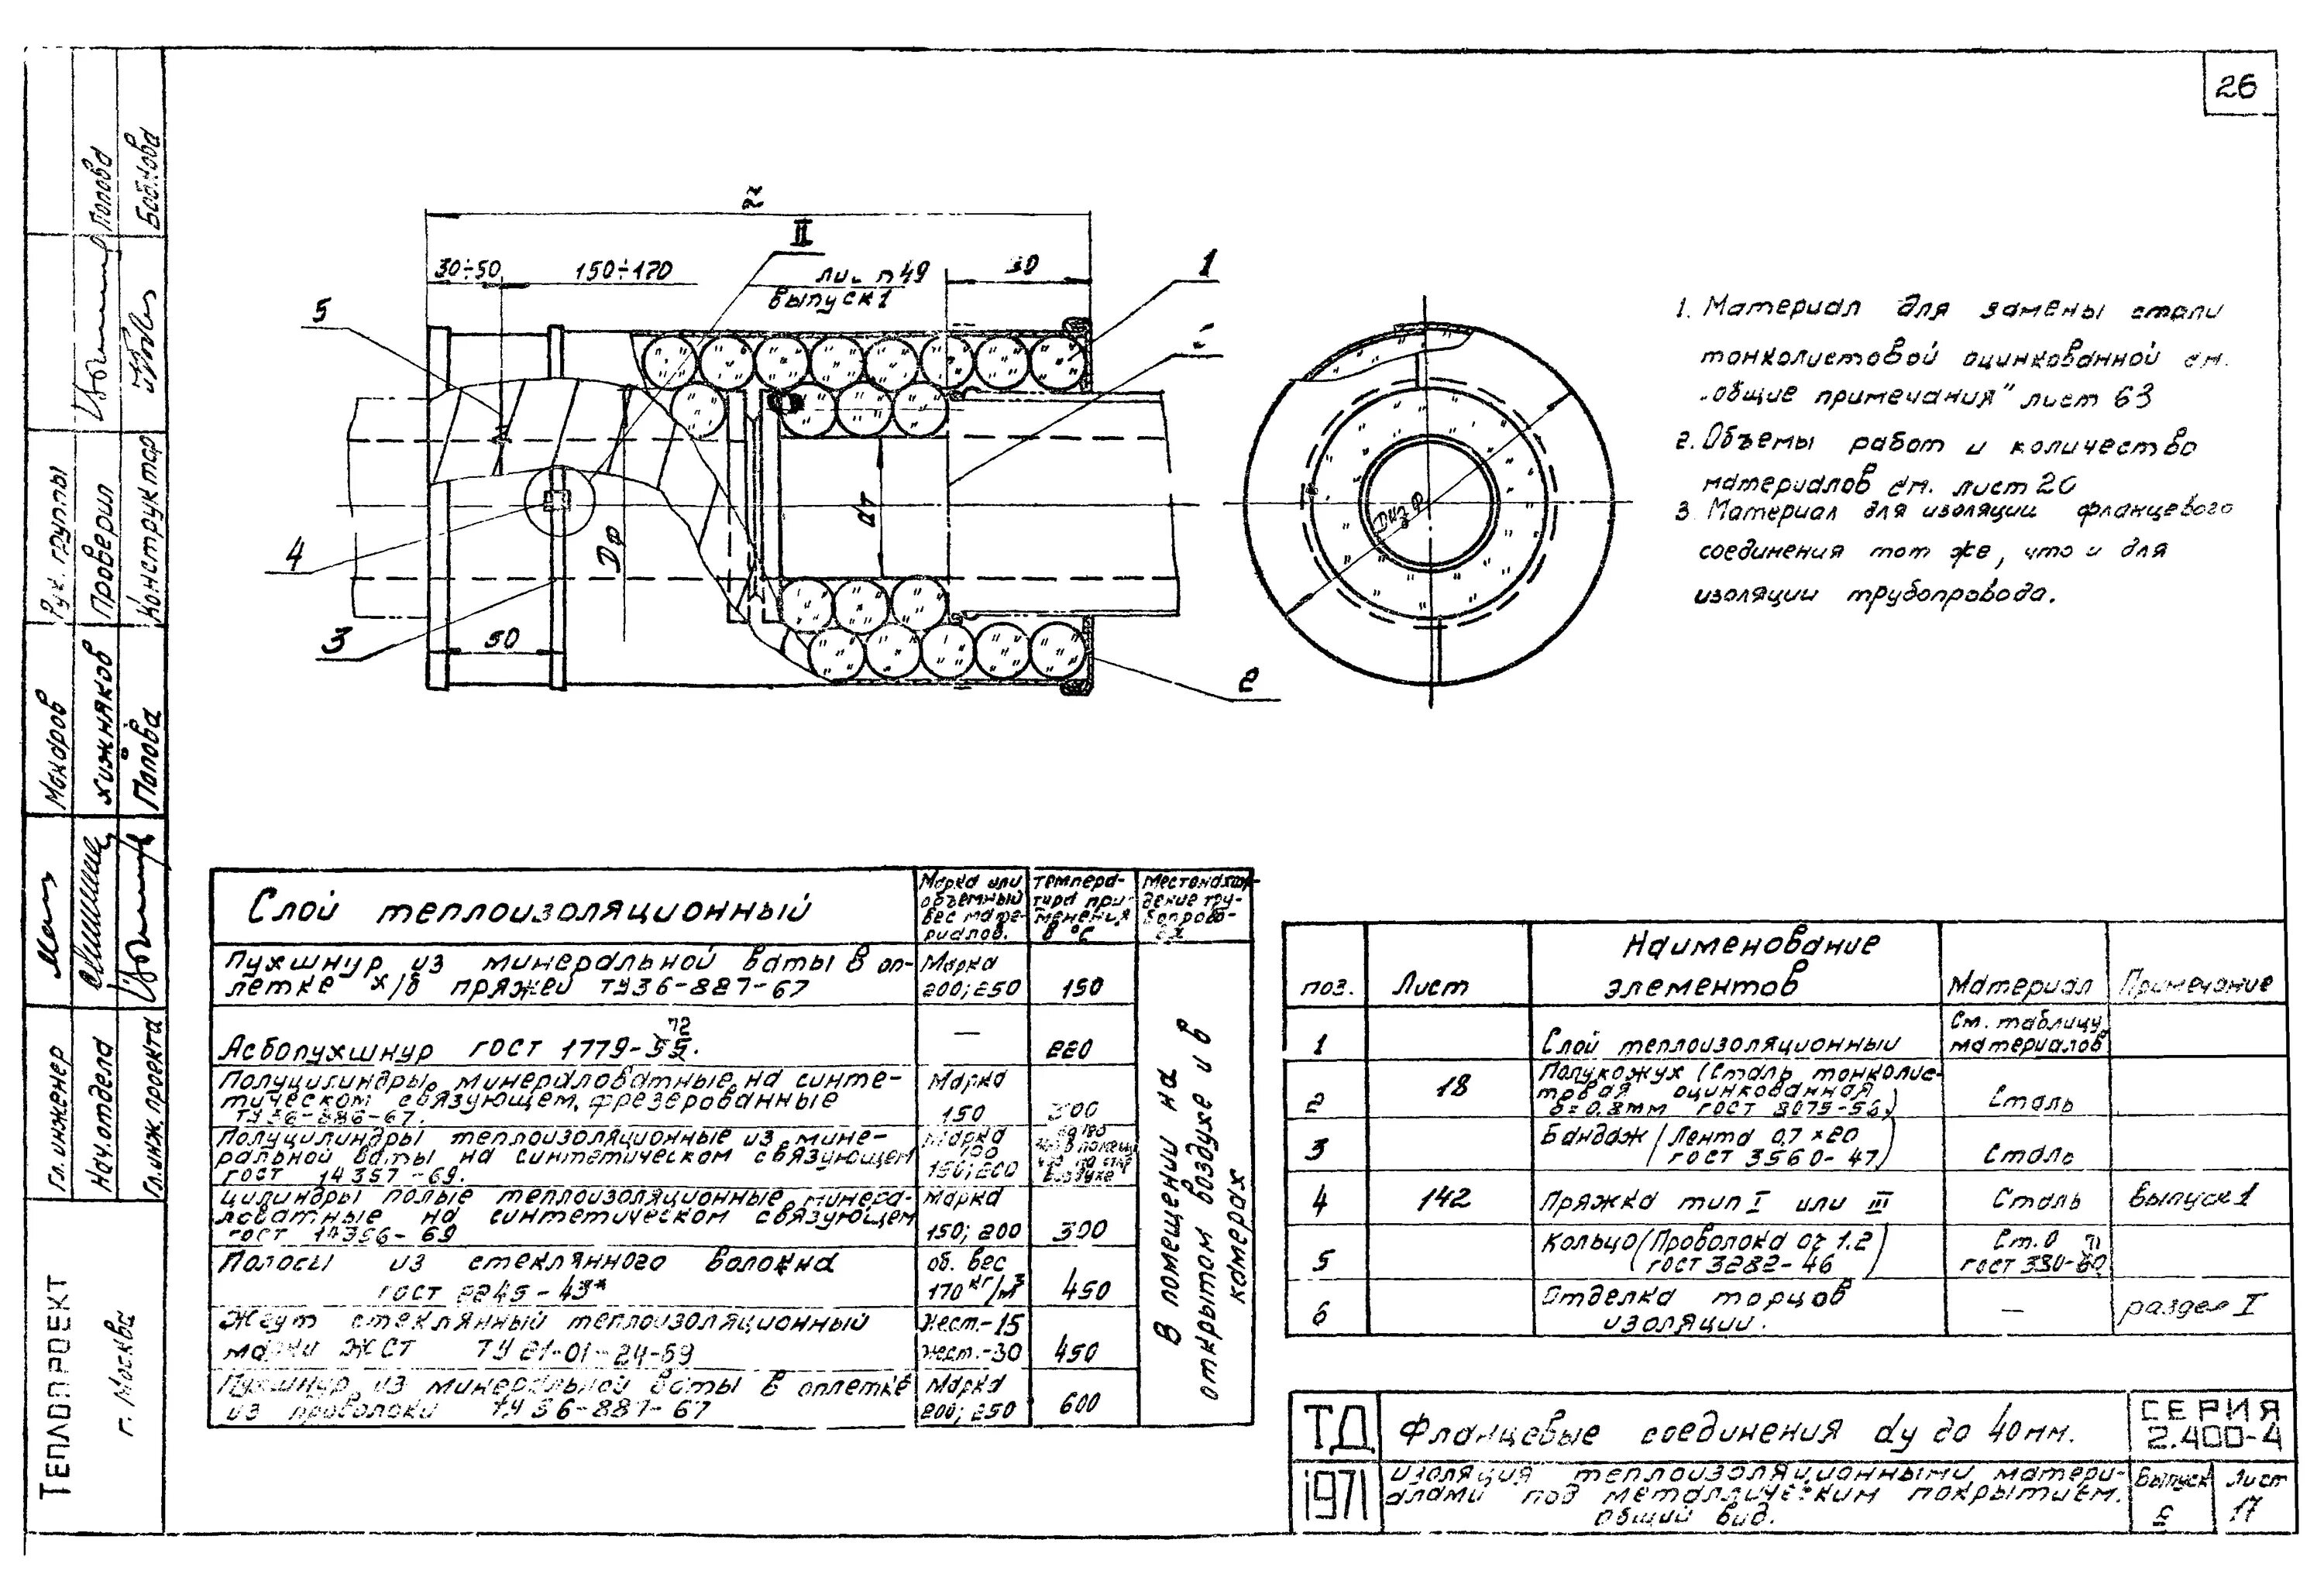 26
30÷50
150÷170
II
лист 49
выпуск 1
30
1
5
4
3
50
Dф
dт
2
Dиз.ф
1. Материал для замены стали
тонколистовой оцинкованной см.
„общие примечания” лист 63
2. Объемы работ и количество
материалов см. лист 20
3. Материал для изоляции фланцевого
соединения тот же, что и для
изоляции трубопровода.
Слой теплоизоляционный
Марка или
объемный
вес мате-
риалов.
Темпера-
тура при-
менения
в °С
Местонахож-
дение тру-
бопрово-
да
Пухшнур из минеральной ваты в оп-
летке х/б пряжей ТУ36-887-67
Марка
200; 250
150
Асбопухшнур ГОСТ 1779-55.
72
—
220
Полуцилиндры минераловатные на синте-
тическом связующем, фрезерованные
ТУ36-886-67.
Марка
150
300
Полуцилиндры теплоизоляционные из мине-
ральной ваты на синтетическом связующем
ГОСТ 14357-69.
Марка
100
150; 200
Цилиндры полые теплоизоляционные минера-
ловатные на синтетическом связующем
ГОСТ 14356-69
Марка
150; 200
300
Полосы из стеклянного волокна
ГОСТ 2245-43*
об. вес
170 кг/м³
450
Жгут стеклянный теплоизоляционный
марки ЖСТ ТУ 21-01-24-69
Жест.-15
жест.-30
450
Пухшнур из минеральной ваты в оплетке
из проволоки ТУ36-887-67
Марка
200; 250
600
В помещении на
открытом воздухе и в
камерах
поз.
Лист
Наименование
элементов
Материал
Примечание
1
Слой теплоизоляционный
См. таблицу
материалов
2
18
Полукожух (Сталь тонколис-
товая оцинкованная
δ=0,8мм ГОСТ 8075-56)
Сталь
3
Бандаж (Лента 0,7×20
ГОСТ 3560-47)
Сталь
4
142
Пряжка тип I или III
Сталь
Выпуск 1
5
Кольцо (Проволока оч 1.2
ГОСТ 3282-46)
Ст.0
71
ГОСТ 380-60
6
Отделка торцов
изоляции.
—
раздел I
ТД
1971
Фланцевые соединения dу до 40мм.
СЕРИЯ
2.400-4
Изоляция теплоизоляционными матери-
алами под металлическим покрытием.
Общий вид.
Выпуск
Лист
17
ТЕПЛОПРОЕКТ
г. Москва
Гл. инженер
Нач. отдела
Гл. инж. проекта
Макаров
Хижняков
Попова
Рук. группы
Проверил
Конструктор
Попова